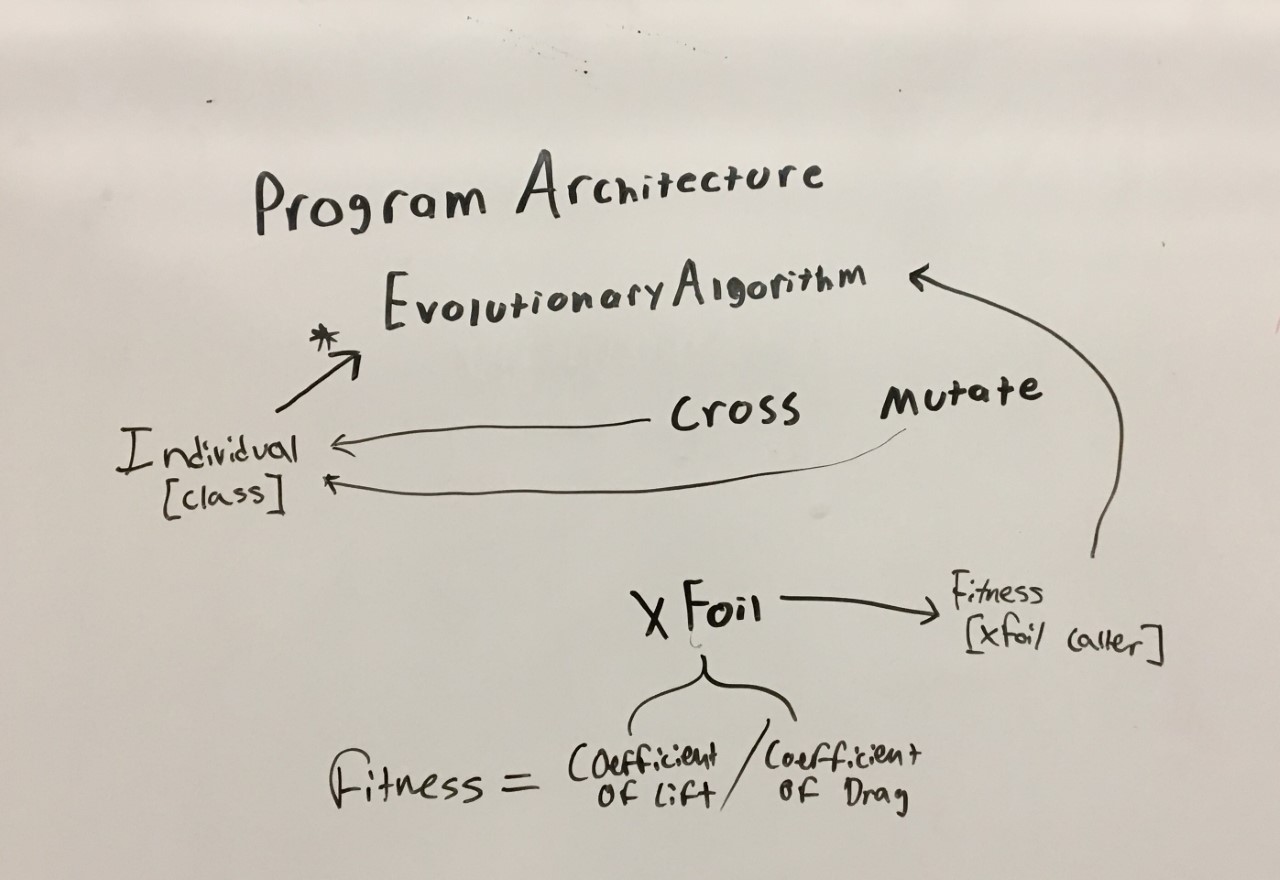 Program Architecture
EvolutionaryAlgorithm
*
Cross mutate
Individual
[class]
XFoil
Fitness
[xfoil caller]
Fitness = Coefficient OF Lift / Coefficient OF Drag